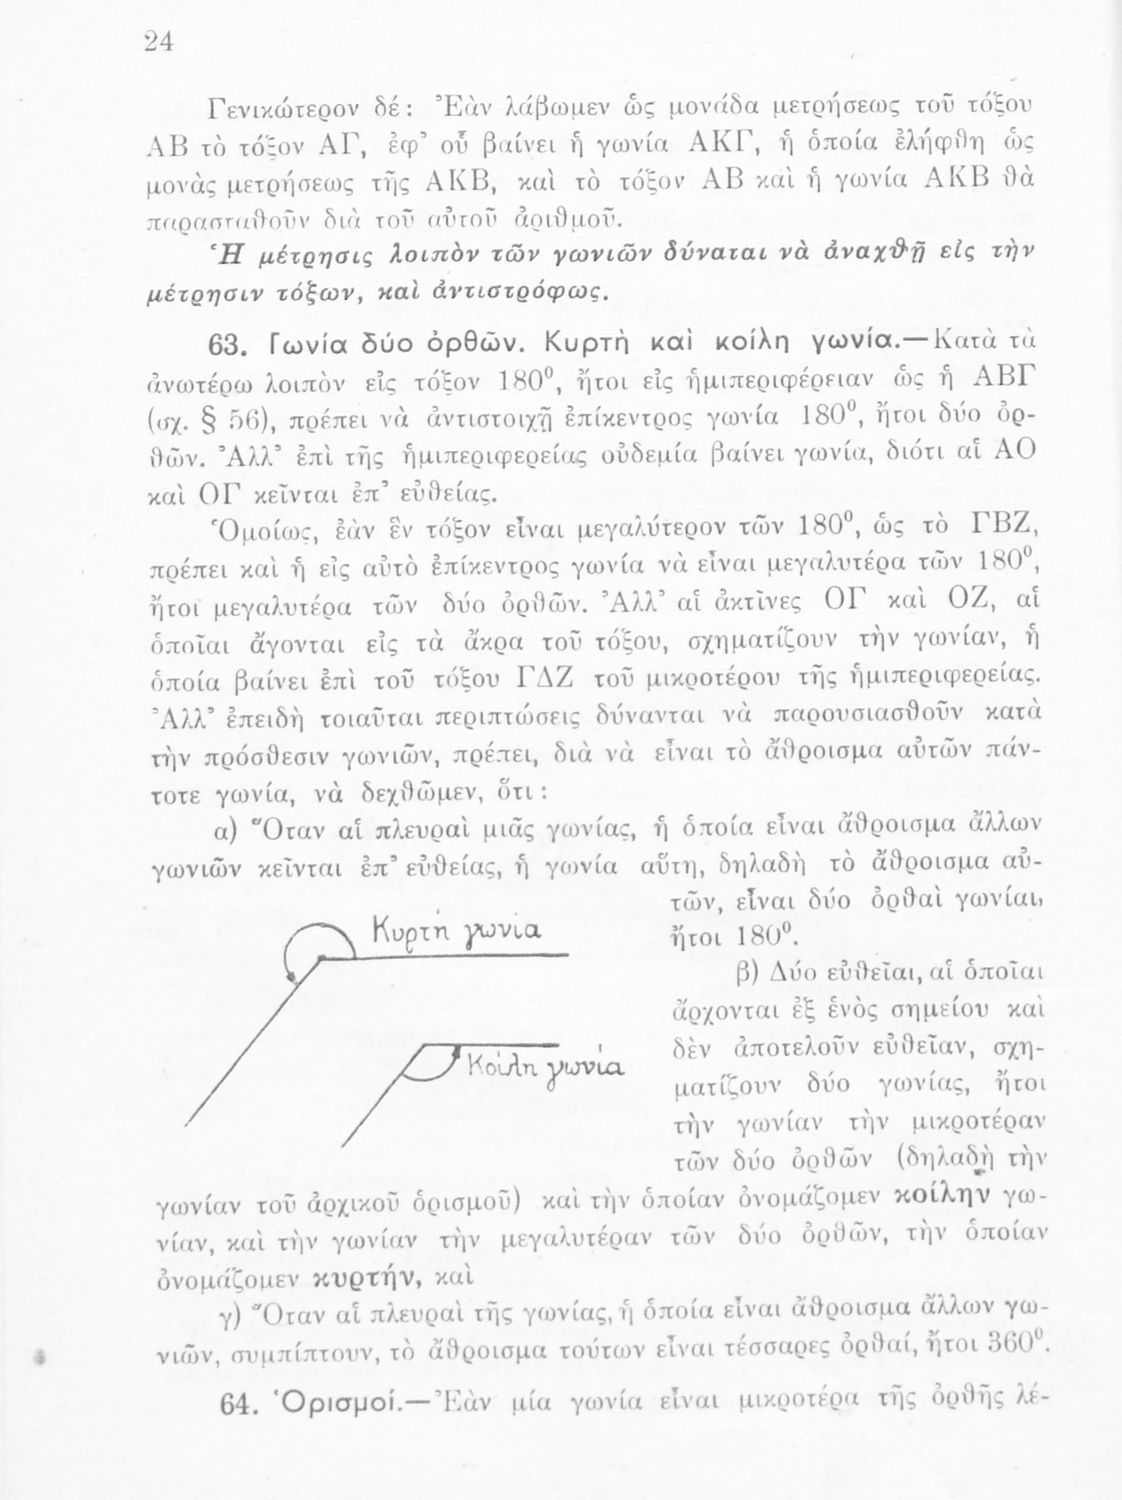 24
Γενικώτερον δέ: Ἐὰν λάβωμεν ὡς μονάδα μετρήσεως τοῦ τόξου
ΑΒ τὸ τόξον ΑΓ, ἐφ’ οὗ βαίνει ἡ γωνία ΑΚΓ, ἡ ὁποία ἐλήφθη ὡς
μονὰς μετρήσεως τῆς ΑΚΒ, καὶ τὸ τόξον ΑΒ καὶ ἡ γωνία ΑΚΒ θὰ
παρασταθοῦν διὰ τοῦ αὐτοῦ ἀριθμοῦ.
Ἡ μέτρησις λοιπὸν τῶν γωνιῶν δύναται νὰ ἀναχθῇ εἰς τὴν
μέτρησιν τόξων, καὶ ἀντιστρόφως.
63. Γωνία δύο ὀρθῶν. Κυρτὴ καὶ κοίλη γωνία.—Κατὰ τὰ
ἀνωτέρω λοιπὸν εἰς τόξον 180⁰, ἤτοι εἰς ἡμιπεριφέρειαν ὡς ἡ ΑΒΓ
(σχ. § 56), πρέπει νὰ ἀντιστοιχῇ ἐπίκεντρος γωνία 180⁰, ἤτοι δύο ὀρ-
θῶν. Ἀλλ’ ἐπὶ τῆς ἡμιπεριφερείας οὐδεμία βαίνει γωνία, διότι αἱ ΑΟ
καὶ ΟΓ κεῖνται ἐπ’ εὐθείας.
Ὁμοίως, ἐὰν ἓν τόξον εἶναι μεγαλύτερον τῶν 180⁰, ὡς τὸ ΓΒΖ,
πρέπει καὶ ἡ εἰς αὐτὸ ἐπίκεντρος γωνία νὰ εἶναι μεγαλυτέρα τῶν 180⁰,
ἤτοι μεγαλυτέρα τῶν δύο ὀρθῶν. Ἀλλ’ αἱ ἀκτῖνες ΟΓ καὶ ΟΖ, αἱ
ὁποῖαι ἄγονται εἰς τὰ ἄκρα τοῦ τόξου, σχηματίζουν τὴν γωνίαν, ἡ
ὁποία βαίνει ἐπὶ τοῦ τόξου ΓΔΖ τοῦ μικροτέρου τῆς ἡμιπεριφερείας.
Ἀλλ’ ἐπειδὴ τοιαῦται περιπτώσεις δύνανται νὰ παρουσιασθοῦν κατὰ
τὴν πρόσθεσιν γωνιῶν, πρέπει, διὰ νὰ εἶναι τὸ ἄθροισμα αὐτῶν πάν-
τοτε γωνία, νὰ δεχθῶμεν, ὅτι :
α) Ὅταν αἱ πλευραὶ μιᾶς γωνίας, ἡ ὁποία εἶναι ἄθροισμα ἄλλων
γωνιῶν κεῖνται ἐπ’ εὐθείας, ἡ γωνία αὕτη, δηλαδὴ τὸ ἄθροισμα αὐ-
τῶν, εἶναι δύο ὀρθαὶ γωνίαι,
ἤτοι 180⁰.
Κυρτὴ γωνία
Κοίλη γωνία
β) Δύο εὐθεῖαι, αἱ ὁποῖαι
ἄρχονται ἐξ ἑνὸς σημείου καὶ
δὲν ἀποτελοῦν εὐθεῖαν, σχη-
ματίζουν δύο γωνίας, ἤτοι
τὴν γωνίαν τὴν μικροτέραν
τῶν δύο ὀρθῶν (δηλαδὴ τὴν
γωνίαν τοῦ ἀρχικοῦ ὁρισμοῦ) καὶ τὴν ὁποίαν ὀνομάζομεν κοίλην γω-
νίαν, καὶ τὴν γωνίαν τὴν μεγαλυτέραν τῶν δύο ὀρθῶν, τὴν ὁποίαν
ὀνομάζομεν κυρτήν, καὶ
γ) Ὅταν αἱ πλευραὶ τῆς γωνίας, ἡ ὁποία εἶναι ἄθροισμα ἄλλων γω-
νιῶν, συμπίπτουν, τὸ ἄθροισμα τούτων εἶναι τέσσαρες ὀρθαί, ἤτοι 360⁰.
64. Ὁρισμοί.—Ἐὰν μία γωνία εἶναι μικροτέρα τῆς ὀρθῆς λέ-